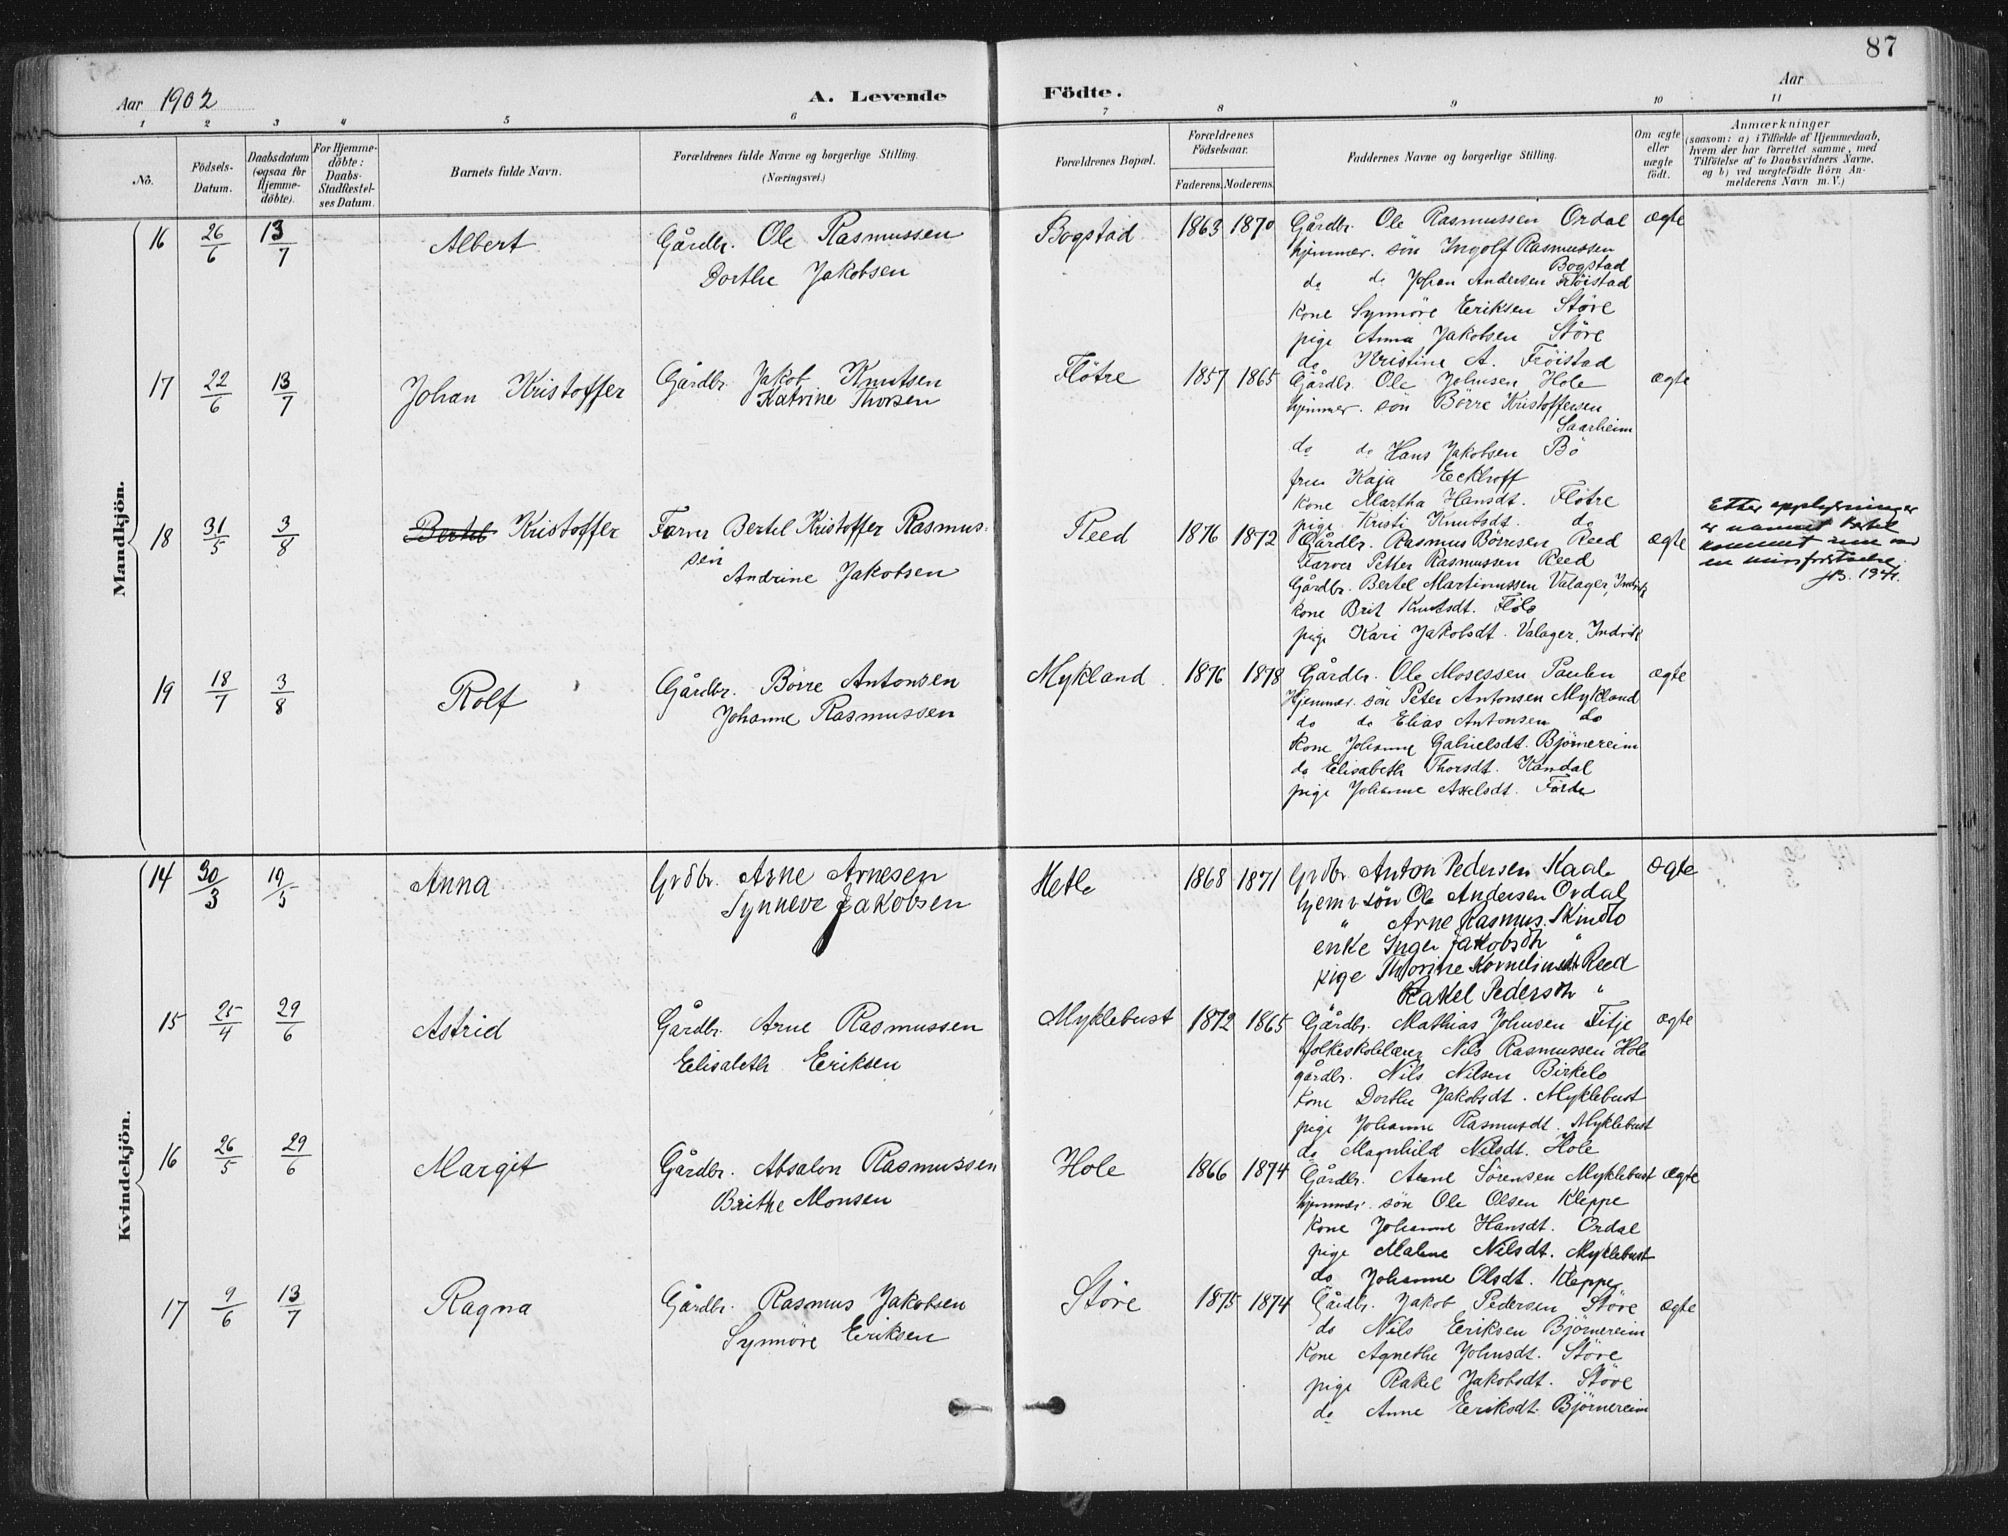 87
Aar 1902
A. Levende Födte.
Aar
1 2 3 4 5 6 7 8 9 10 11
No.
Födsels-Datum.
Daabsdatum (ogsaa for Hjemme-döbte).
For Hjemme-döbte: Daabs-Stadfæstel-ses Datum.
Barnets fulde Navn.
Forældrenes fulde Navne og borgerlige Stilling. (Næringsvei.)
Forældrenes Bopæl.
Forældrenes Födselsaar.
Faderens. Moderens.
Faddernes Navne og borgerlige Stilling.
Om ægte eller uægte födt.
Anmærkninger
(saasom: a) i Tilfælde af Hjemmedaab, hvem der har forrettet samme, med Tilföielse af to Daabsvidners Navne, og b) ved uægtefödte Börn An-melderens Navn m. V.)
Mandkjön.
16 26/6 13/7 Albert Gårdbr. Ole Rasmussen
Dorthe Jakobsen
Bogstad 1863 1870 Gårdbr. Ole Rasmussen Ordal ægte
hjemmev. sön Ingolf Rasmussen
Bogstad
do do Johan Andersen Fröistad
Kone Synnöre Eriksen Störe
pige Anna Jakobsen Störe
do Kristine A. Fröistad
17 22/6 13/7 Johan Kristoffer Gårdbr. Jakob Knutsen
Katrine Thorsen
Flötre 1857 1865 Gårdbr. Ole Johnsen Hole ægte
hjemmev. sön Börre Kristoffersen
Saarheim
do do Hans Jakobsen Bö
frue Kaja Eckhoff
Kone Martha Hansdt. Flötre
pige Kristi Knutsdt. do
18 31/5 3/8 Bertel Kristoffer Farver Bertel Kristoffer Rasmus-
sen
Andrine Jakobsen
Reed 1876 1872 Gårdbr. Rasmus Börresen Reed ægte
Farver Petter Rasmussen Reed
Gårdbr. Bertel Martinussen Valager, Indvik
Kone Brit Knutsdt. Flölo
pige Kari Jakobsdt. Valager, Indvik
Etter opplysninger
er navnet Bertel
kommet inn ved
en misforståelse
1941.
19 18/7 3/8 Rolf Gårdbr. Börre Antonsen
Johanne Rasmussen
Mykland 1876 1878 Gårdbr. Ole Mosessen Paulen ægte
Hjemmev. sön Peter Antonsen Mykland
do do Elias Antonsen do
Kone Johanne Gabrielsdt. Björnereim
do Elisabeth Thorsdt. Kandal
pige Johanne Axelsdt. Förde
Kvindekjön.
14 30/3 19/5 Anna Grdbr. Arne Arnesen
Synneve Jakobsen
Hetle 1868 1871 Grdbr Anton Pedersen Kaal. ægte
hjemv sön Ole Andersen Ordal
" Arne Rasmus. Skinlo
enke Inger Jakobsdtr "
pige Thorine Kornelinsdt Reed
" Rakel Pedersdtr "
15 25/4 29/6 Astrid Gårdbr. Arne Rasmussen
Elisabeth Eriksen
Myklebust 1872 1865 Gårdbr. Mathias Johnsen Fitje ægte
folkeskolelærer Nils Rasmussen Hole
gårdbr. Nils Nilsen Birkelo
Kone Dorthe Jakobsdt. Myklebust
pige Johanne Rasmusdt. Myklebust
do Magnhild Nilsdt. Hole
16 26/5 29/6 Margit Gårdbr. Absalon Rasmussen
Brithe Monsen
Hole 1866 1874 Gårdbr. Arne Sörensen Myklebust ægte
hjemmev. sön Ole Olsen Kleppe
Kone Johanne Hansdt. Ordal
pige Malene Nilsdt. Myklebust
do Johanne Olsdt. Kleppe
17 9/6 13/7 Ragna Gårdbr. Rasmus Jakobsen
Synnöre Eriksen
Störe 1875 1874 Gårdbr. Jakob Pedersen Störe ægte
do Nils Eriksen Björnereim
Kone Agnethe Johnsdt. Störe
pige Rakel Jakobsdt. Störe
do Anne Eriksdt. Björnereim